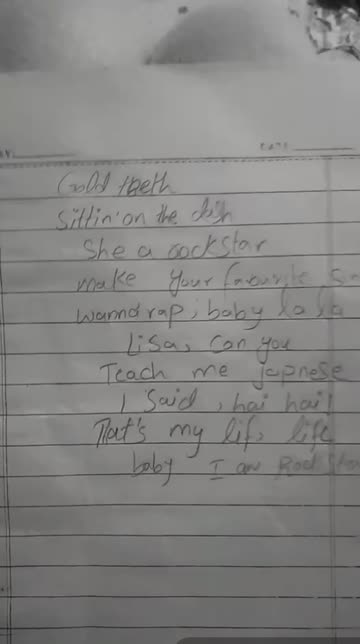 DATE:
Gold teeth
Sittin' on the dash
She a rockstar
make your favourite
wanna rap, baby la la
Lisa, can you
Teach me japnese
I said, hai hai!
That's my life, life
baby I am Rock